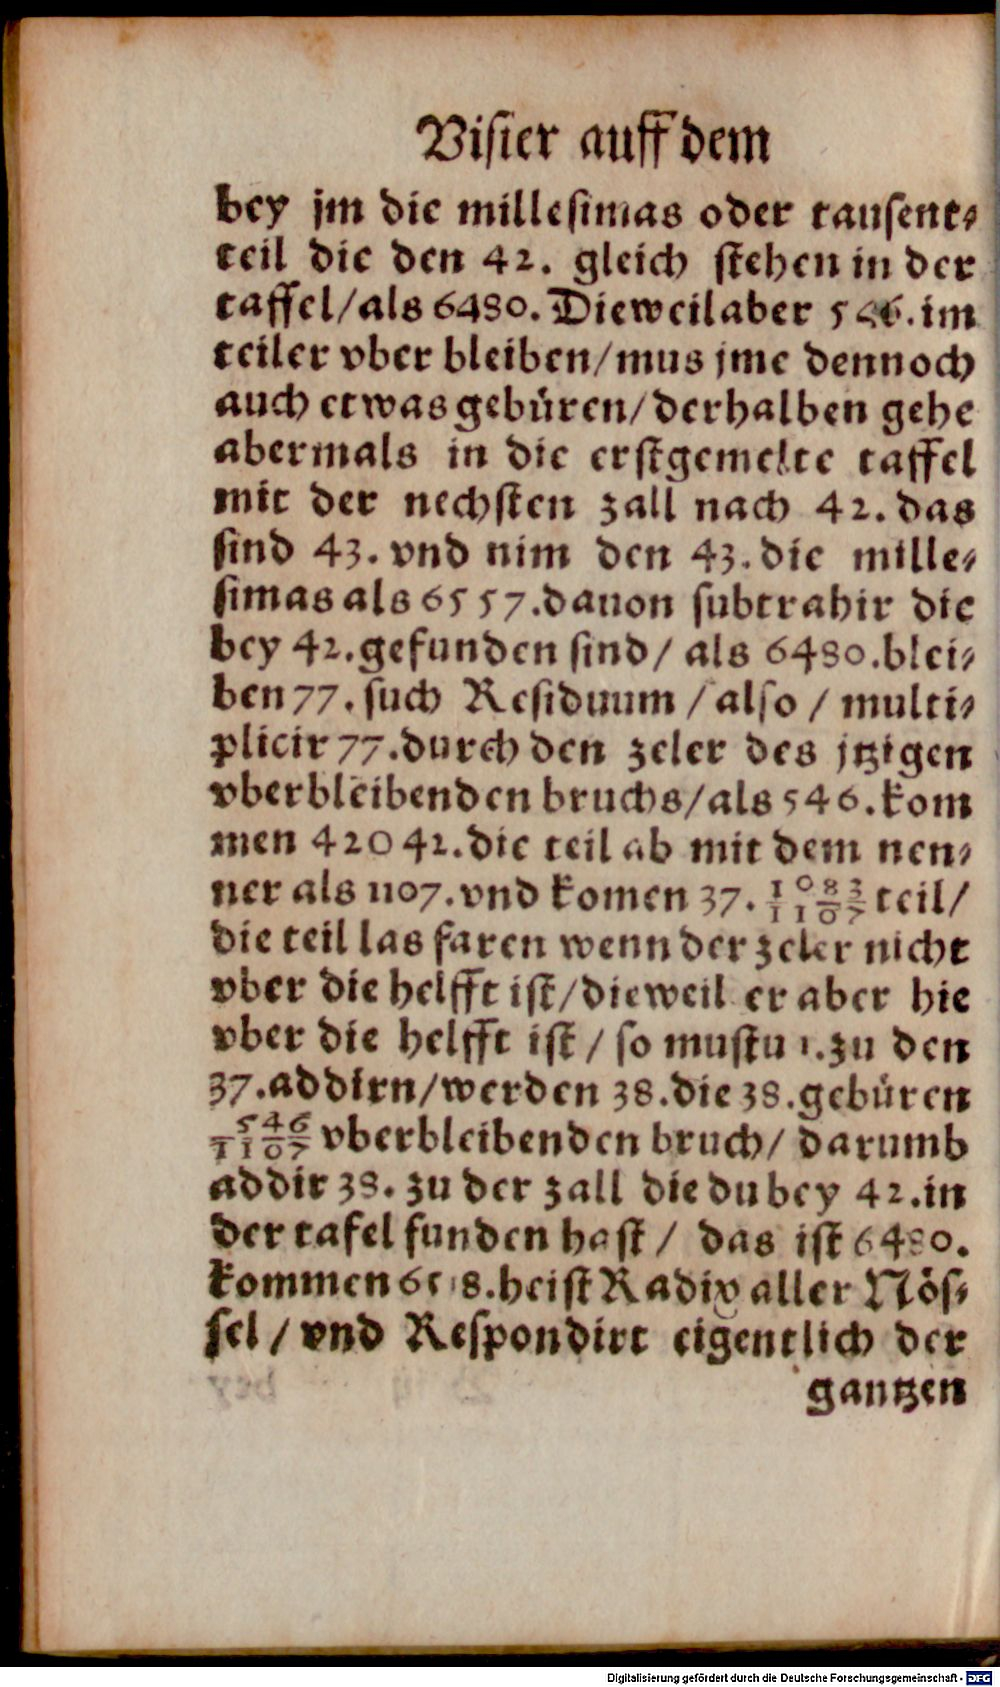 Visier auff dem
bey jm die millesimas oder tausent⸗
teil die den 42. gleich stehen in der
taffel/als 6480. Dieweil aber 546. im
teiler vber bleiben/mus jme dennoch
auch etwas gebüren/derhalben gehe
abermals in die erstgemelte taffel
mit der nechsten zall nach 42. das
sind 43. vnd nim den 43. die mille⸗
simas als 6557. dauon subtrahir die
bey 42. gefunden sind/ als 6480. blei⸗
ben 77. such Residuum / also / multi⸗
plicir 77. durch den zeler des jtzigen
vberbleibenden bruchs/als 546. kom
men 42042. die teil ab mit dem nen⸗
ner als 1107. vnd komen 37. 1083/1107 teil/
die teil las faren wenn der zeler nicht
vber die helfft ist/dieweil er aber hie
vber die helfft ist / so mustu 1. zu den
37. addirn/werden 38. die 38. gebüren
546/1107 vberbleibenden bruch/ darumb
addir 38. zu der zall die du bey 42. in
der tafel funden hast / das ist 6480.
kommen 6518. heist Radix aller Nös⸗
sel / vnd Respondirt eigentlich der
gantzen
Digitalisierung gefördert durch die Deutsche Forschungsgemeinschaft - DFG